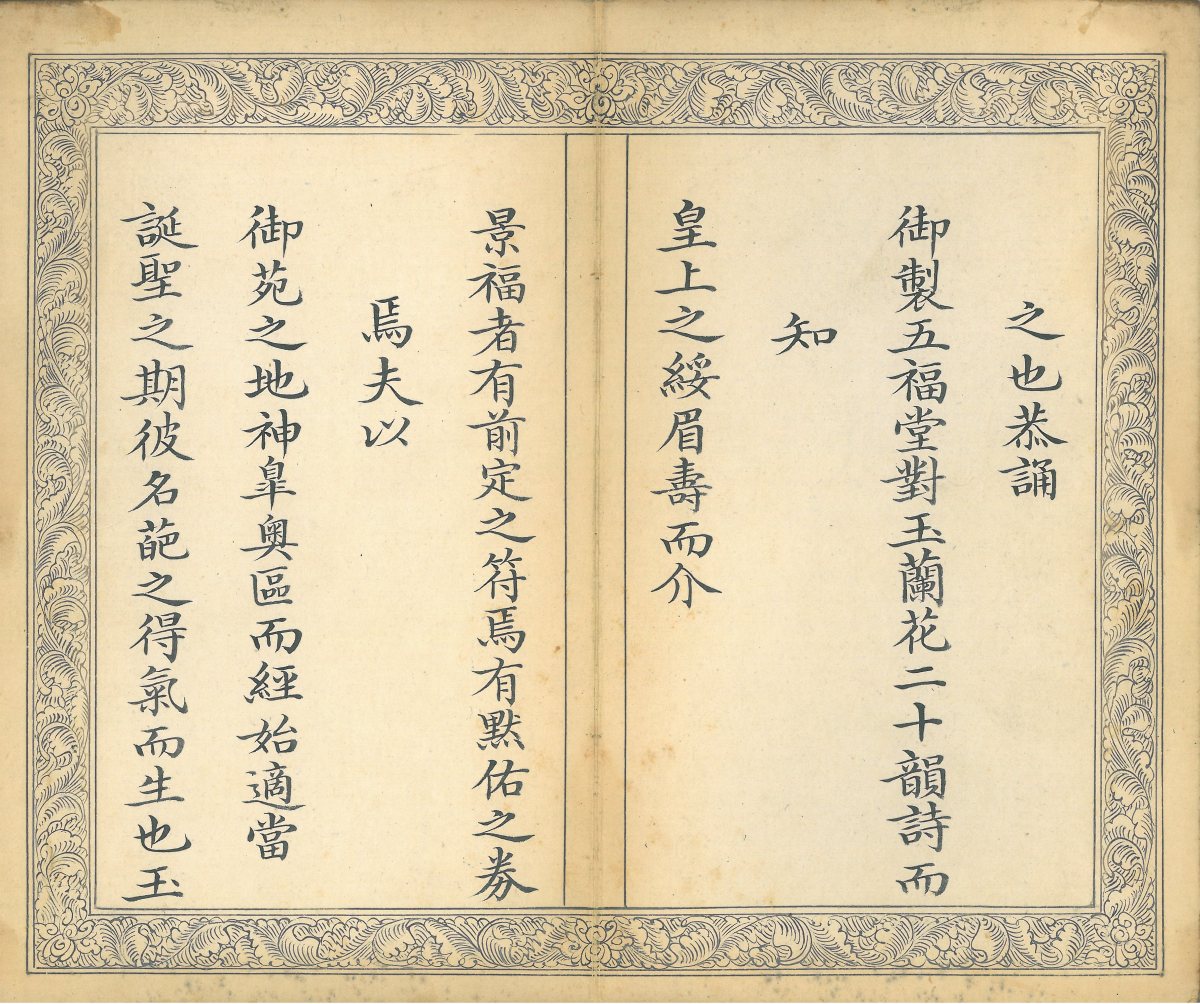 之也恭誦
御製五福堂對玉蘭花二十韻詩而
知
皇上之綏眉壽而介
景福者有前定之符焉有默佑之券
焉夫以
御苑之地神皐奧區而經始適當
誕聖之期彼名葩之得氣而生也玉